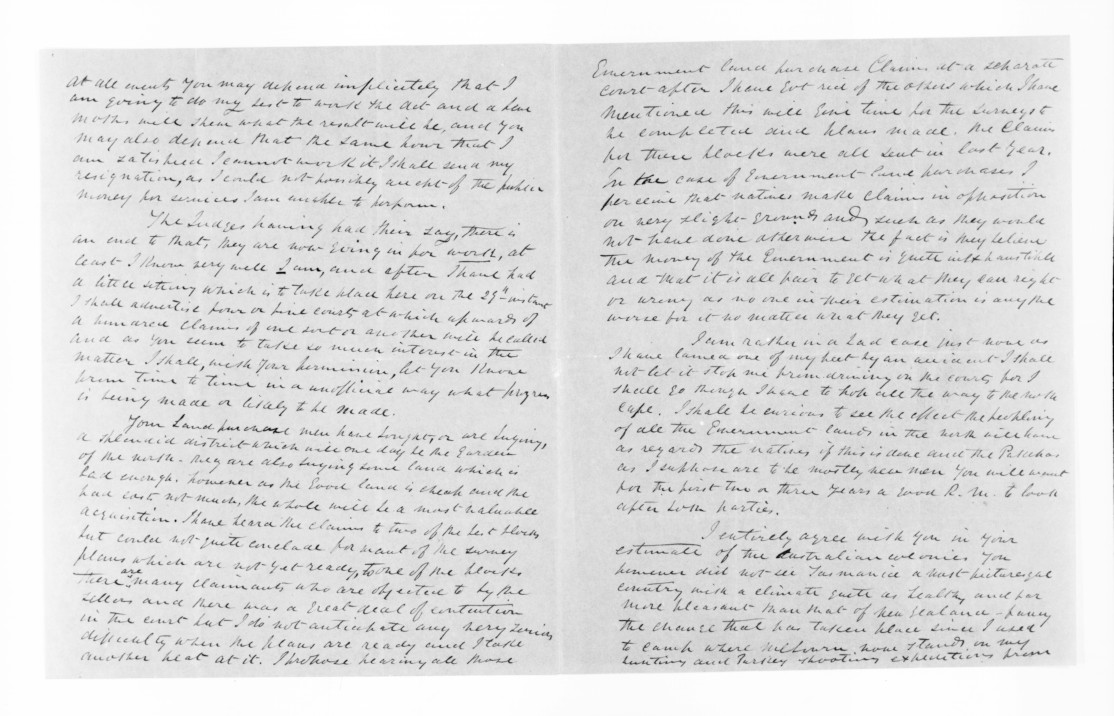 at all events you may depend implicitely that I
am going to do my best to work the act and a few
moths will shew what the result will be, and you
may also depend that the same hour that I
am satisfied I cannot work it I shall send my
resignation, as I could not possibly accept of the public
money for services I am unable to perform.
The Judges having had their say, there is
an end to that, they are now going in for work, at
least I know very well I am, and after I have had
a little sitting which is to take place here on the 29th instant
I shall advertise four or five courts at which upwards of
a hundred claims of one sort or another will be called
and as you seem to take so much interest in the
matter I shall, with your permission, let you know
from time to time in a unofficial way what progress
is being made or likely to be made.
Your Land purchase men have bought, or are buying,
a splendid district which will one day be the Garden
of the north. they are also buying some land which is
bad enough. however as the Good land is cheap and the
bad cost not much, the whole will be a most valuable
acquisition. I have heard the claims to two of the best blocks
but could not quite conclude for want of the survey
plans which are not yet ready, to one of the blocks
there are many claimants who are objected to by the
sellers and there was a great deal of contention
in the court but I do not anticipate any very serious
difficulty when the plans are ready and I take
another heat at it. I propose hearing all those
Government land purchase Claims at a separate
court after I have got rid of the others which I have
mentioned this will give time for the surveys to
be completed and plans made. the Claims
for these blocks were all sent in last year.
In the case of Government land purchases I
perceive that natives make claims in opposition
on very slight grounds and such as they would
not have done otherwise the fact is they believe
the money of the Government is quite inexhaustible
and that it is all fair to get what they can right
or wrong as no one in their estimation is any the
worse for it no matter what they get.
I am rather in a bad case just now as
I have lamed one of my feet by an accident I shall
not let it stop me from driving on the courts for I
shall go though I have to hop all the way to the north
Cape. I shall be curious to see the effect the peopling
of all the Government lands in the north will have
as regards the natives if this is done and the Pakehas
as I suppose are to be mostly new men you will want
for the first two or three years a good R. M. to look
after both parties.
I entirely agree with you in your
estimate of the Australian colonies you
however did not see Tasmania a most picturesque
country with a climate quite as healthy and far
more pleasant than that of New Zealand - funny
the change that has taken place since I used
to camp where Melburn now stands on my
hunting and Turkey shooting expeditions from